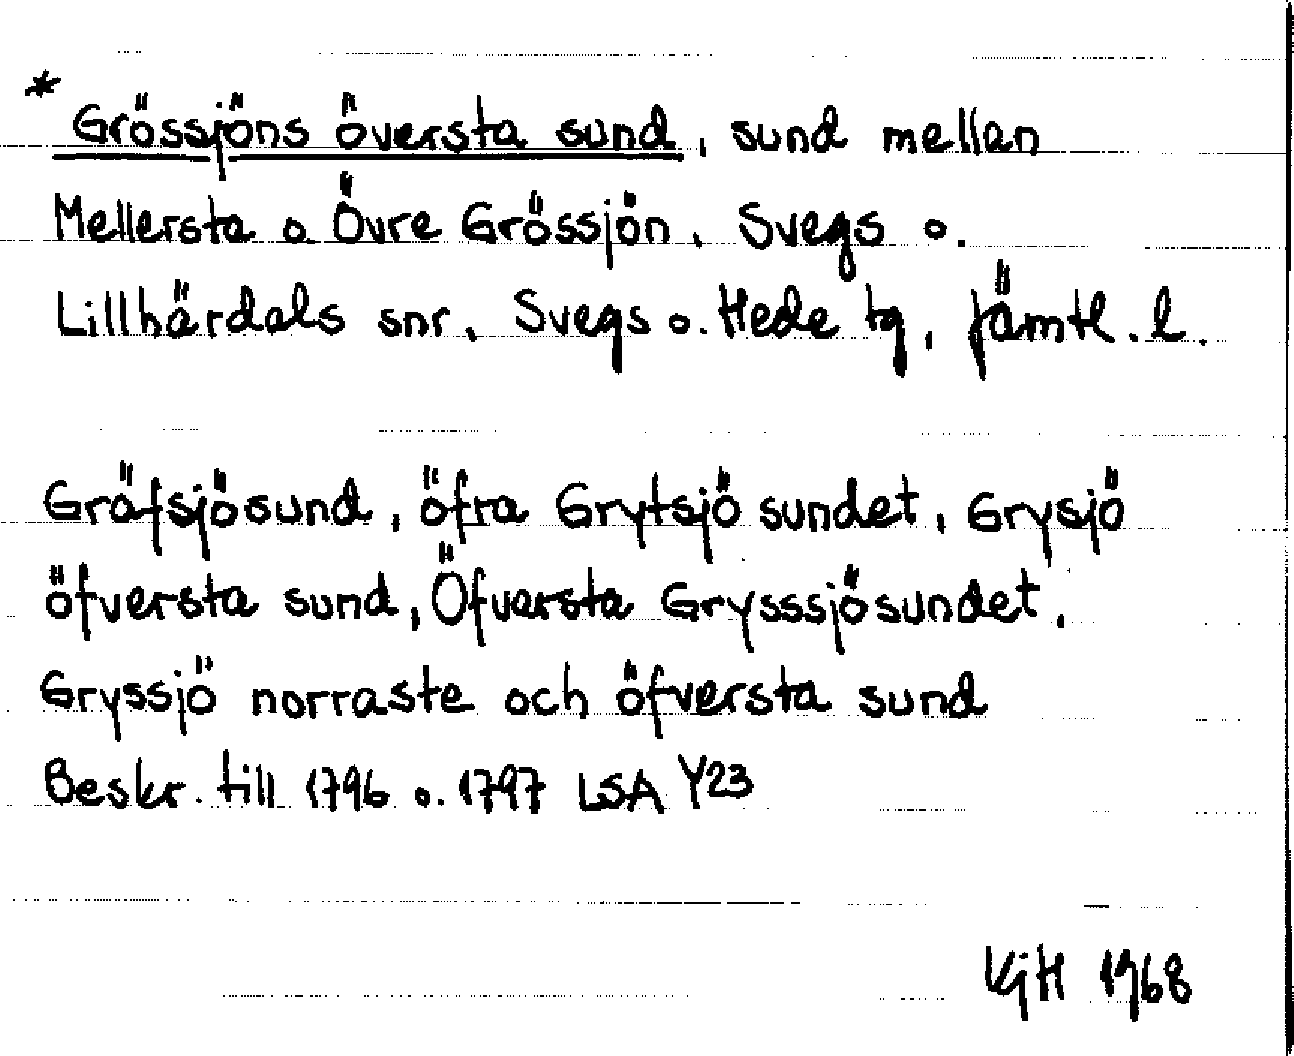 * Grössjöns översta sund, sund mellan
Mellersta o. Övre Grössjön, Svegs o.
Lillhärdals snr, Svegs o. Hede tg, Jämtl. l.
Gräfsjösund, öfra Grytsjö sundet, Grysjö
öfversta sund, Öfversta Grysssjösundet,
Gryssjö norraste och öfversta sund
Beskr. till 1796 o. 1797 LSA Y23
KjH 1968